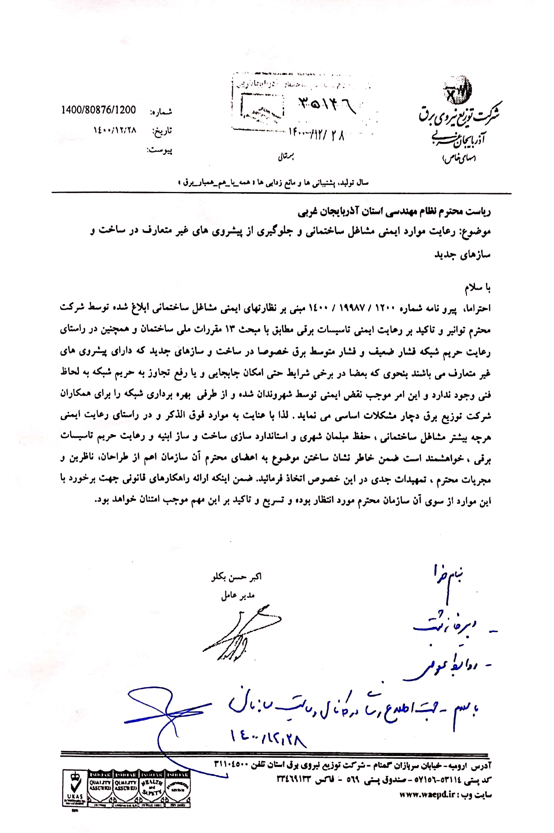 شرکت توزیع نیروی برق
آذربایجان غربی
(سهامی خاص)
۳۵۱۴۶
۱۴۰۰/۱۲/۲۸
شماره: 1400/80876/1200
تاریخ: ۱۴۰۰/۱۲/۲۸
پیوست:
بسمه تعالی
سال تولید، پشتیبانی ها و مانع زدایی ها « همه_با_هم_همیار_برق »
ریاست محترم نظام مهندسی استان آذربایجان غربی
موضوع: رعایت موارد ایمنی مشاغل ساختمانی و جلوگیری از پیشروی های غیر متعارف در ساخت و
سازهای جدید
با سلام
احتراما، پیرو نامه شماره ۱۲۰۰ / ۱۹۹۸۷ / ۱۴۰۰ مبنی بر نظارتهای ایمنی مشاغل ساختمانی ابلاغ شده توسط شرکت
محترم توانیر و تاکید بر رعایت ایمنی تاسیسات برقی مطابق با مبحث ۱۳ مقررات ملی ساختمان و همچنین در راستای
رعایت حریم شبکه فشار ضعیف و فشار متوسط برق خصوصا در ساخت و سازهای جدید که دارای پیشروی های
غیر متعارف می باشند بنحوی که بعضا در برخی شرایط حتی امکان جابجایی و یا رفع تجاوز به حریم شبکه به لحاظ
فنی وجود ندارد و این امر موجب نقض ایمنی توسط شهروندان شده و از طرفی بهره برداری شبکه را برای همکاران
شرکت توزیع برق دچار مشکلات اساسی می نماید . لذا با عنایت به موارد فوق الذکر و در راستای رعایت ایمنی
هرچه بیشتر مشاغل ساختمانی ، حفظ مبلمان شهری و استاندارد سازی ساخت و ساز ابنیه و رعایت حریم تاسیسات
برقی ، خواهشمند است ضمن خاطر نشان ساختن موضوع به اعضای محترم آن سازمان اعم از طراحان، ناظرین و
مجریات محترم ، تمهیدات جدی در این خصوص اتخاذ فرمائید. ضمن اینکه ارائه راهکارهای قانونی جهت برخورد با
این موارد از سوی آن سازمان محترم مورد انتظار بوده و تسریع و تاکید بر این مهم موجب امتنان خواهد بود.
اکبر حسن بکلو
مدیر عامل
بنام خدا
- دبیرخانه ثبت
- روابط عمومی
با سلام - جهت اطلاع رسانی در کانال و سایت سازمان
۱۴۰۰/۱۲/۲۸
آدرس ارومیه - خیابان سربازان گمنام - شرکت توزیع نیروی برق استان تلفن ۳۱۱۰۴۵۰۰
کد پستی ۵۳۱۱۴-۵۷۱۵۶ - صندوق پستی ۵۶۹ - فاکس ۳۳۴۶۹۱۳۳
سایت وب : www.waepd.ir
UKAS
QUALITY ASSURED
QUALITY ASSURED
HEALTH and SAFETY